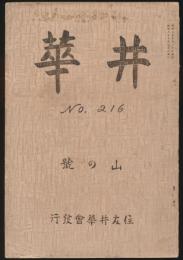 井華
No. 216
山の號
住友井華會發行